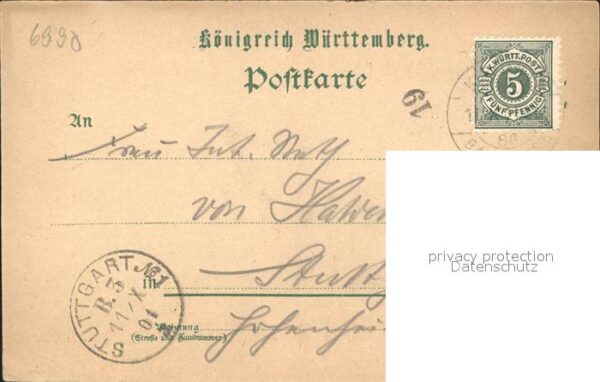 6990
Königreich Württemberg.
Postkarte
K.WÜRTT.POST
5
FÜNF PFENNIG
19
An
Frau
von
privacy protection
Datenschutz
in
Stutt
Wohnung
(Straße und Hausnummer)
Hohenhei
STUTTGART No 1
11/X
01